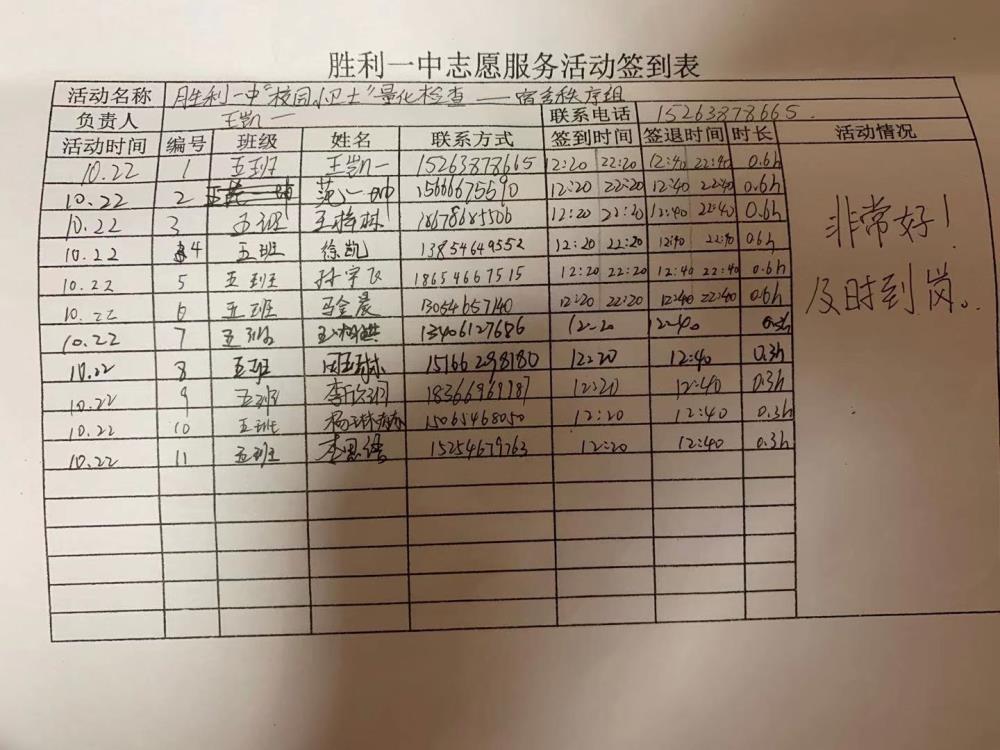 胜利一中志愿服务活动签到表
活动名称 胜利一中“校园小卫士”量化检查——宿舍秩序组
负责人 王凯一 联系电话 15263878665.
活动时间 编号 班级 姓名 联系方式 签到时间 签退时间 时长 活动情况
10.22 1 五班 王凯一 15263878665 12:20 22:20 12:40 22:40 0.6h
10.22 2 范一 15666675590 12:20 22:20 12:40 22:40 0.6h
10.22 3 五班 18678685506 12:20 22:20 12:40 22:40 0.6h
10.22 4 五班 徐凯 13854649552 12:20 22:20 12:40 22:40 0.6h
10.22 5 五班 孙宇飞 18654667515 12:20 22:20 12:40 22:40 0.6h
10.22 6 五班 马金晨 13054657140 12:20 22:20 12:40 22:40 0.6h
10.22 7 五班 13406127686 12:20 12:40 0.3h
10.22 8 五班 15166298180 12:20 12:40 0.3h
10.22 9 五班 18366969987 12:20 12:40 0.3h
10.22 10 五班 15065468050 12:20 12:40 0.3h
10.22 11 五班 李思 15254679763 12:20 12:40 0.3h
非常好！
及时到岗。